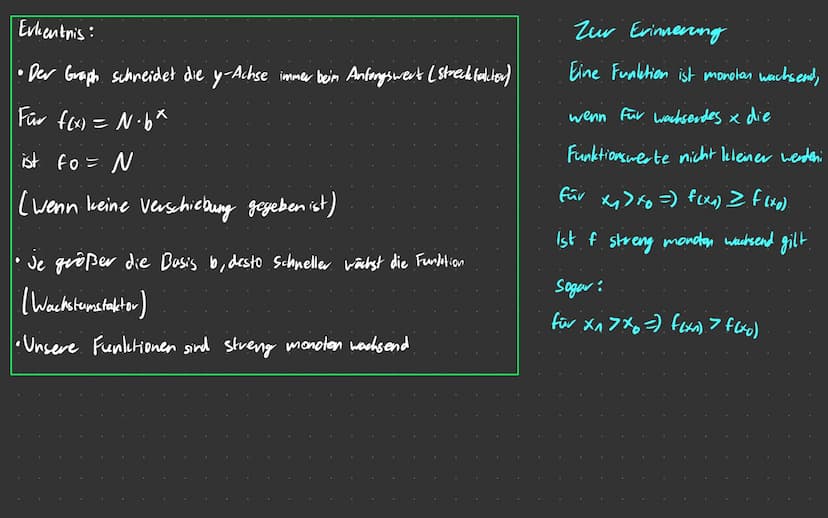 Erkentnis:
• Der Graph schneidet die y-Achse immer beim Anfangswert (Streckfaktor)
Für f(x) = N·b^x
ist f0 = N
(wenn keine Verschiebung gegeben ist)
• je größer die Basis b, desto Schneller wächst die Funktion
(Wachstumsfaktor)
• Unsere Funktionen sind streng monoton wachsend
Zur Erinnerung
Eine Funktion ist monoton wachsend,
wenn für wachsendes x die
Funktionswerte nicht kleiner werden.
für x₁ > x₀ => f(x₁) ≥ f(x₀)
Ist f streng monoton wachsend gilt
sogar:
für x₁ > x₀ => f(x₁) > f(x₀)